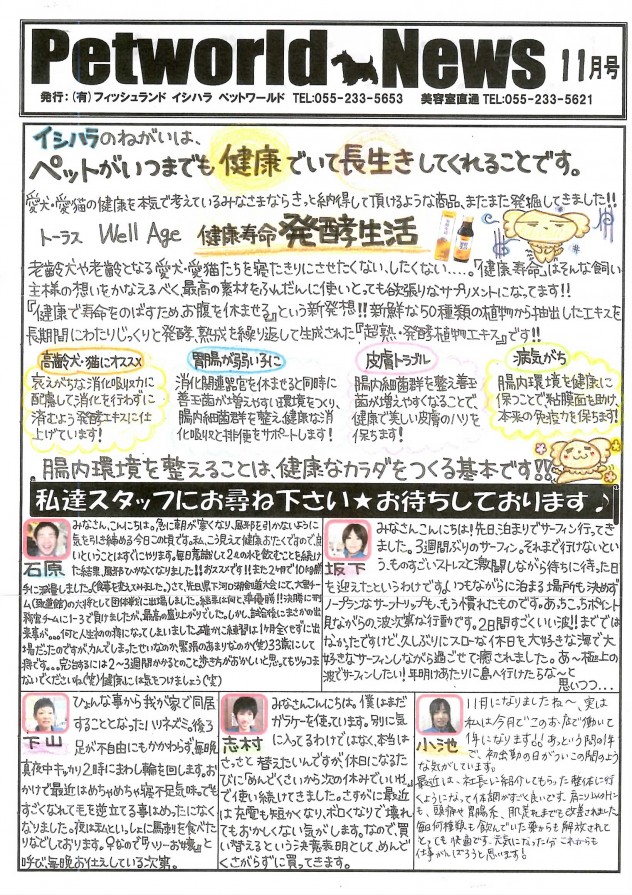 Petworld News 11月号
発行：(有)フィッシュランド イシハラ ペットワールド TEL:055-233-5653 美容室直通 TEL:055-233-5621
イシハラのねがいは、
ペットがいつまでも健康でいて長生きしてくれることです。
愛犬・愛猫の健康を本気で考えているみなさまならきっと納得して頂けるような商品、またまた発掘してきました!!
トーラス Well Age 健康寿命 発酵生活
老齢犬や老齢となる愛犬・愛猫たちを寝たきりにさせたくない、したくない……。『健康寿命』はそんな飼い
主様の想いをかなえるべく、最高の素材をふんだんに使いとっても欲張りなサプリメントになってます!!
『健康で寿命をのばすため、お腹を休ませる』という新発想!! 新鮮な50種類の植物から抽出したエキスを
長期間にわたりじっくりと発酵、熟成を繰り返して生成された『超熟・発酵植物エキス』です!!
高齢犬・猫にオススメ
衰えがちな消化吸収力に
配慮して消化を行わずに
済むよう発酵エキスに仕
上げています!
胃腸が弱い子に
消化関連器官を休ませると同時に
善玉菌が増えやすい環境をつくり、
腸内細菌群を整え、健康な消
化吸収と排便をサポートします!
皮膚トラブル
腸内細菌群を整え善玉
菌が増えやすくなることで、
健康で美しい皮膚のハリを
保ちます!
病気がち
腸内環境を健康に
保つことで粘膜面を助け、
本来の免疫力を保ちます!
腸内環境を整えることは、健康なカラダをつくる基本です!!
私達スタッフにお尋ね下さい★お待ちしております♪
石原
みなさん、こんにちは。急に朝が寒くなり、風邪を引かないように
気を引き締める今日この頃です。私、こう見えて健康おたくですので、良
いということはすぐにやります。毎日寛飲して2ℓの水を飲むことを続け
た結果、風邪ひかなくなりました!! おススメです!! また2ヶ月で10キロ勝
手に減量しました。(食事を変えてみました。)さて、先日県下河口湖剣道大会にて、大型チー
ム(致道館)の大将として団体戦に出場しました。結果は何と、準優勝!! 決勝に刑
務官チームに1-3で負けましたが、最高の盛り上がりでした。しかし、試合後にまさかの出
来事が。。。何と人生初の痔になってしまいました。確かに練習は1ヶ月全くせずに出
場したのですが力んでしまったせいなのか、緊張のあまりなのか(笑)33歳にして
痔です。。。完治するには2〜3週間かかるとのこと歩き方がおかしいと思ってもツッコま
ないでくださいね(笑)健康には気をつけましょう(笑)
坂下
みなさんこんにちは! 先日、泊まりでサーフィン行ってき
ました。3週間ぶりのサーフィン。それまで行けないとい
う、ものすごいストレスと激闘しながら待ちに待った日
を迎えたというわけです。いつもながらに泊まる場所も決めず
ノープランなサートリップも、もう慣れたものです。あちこちポイント
見ながらの、波次第な行動です。2日間すごくいい波!! までは
なかったですけど、久しぶりにスローな休日を大好きな海で大
好きなサーフィンしながら過ごせて癒されました。あ〜極上の
波でサーフィンしたい! 年明けあたりに島へ行けたらな〜と
思いつつ…
下山
ひょんな事から我が家で同居
することとなったハリネズミ。後3
足が不自由にもかかわらず、毎晩
真夜中キッカリ2時にまわし輪を回します。お
かげで最近はめちゃめちゃ寝不足気味。でも
すごくなれて毛を逆立てる事はめったになく
なりました。夜は私といっしょに馬刺を食べた
りなどしております。♀なので『ハリーお嬢』と
呼び、毎晩お仕えしている次第。
志村
みなさんこんにちは。僕はまだ
ガラケーを使っています。別に気
に入ってるわけではなく、本当は
さっさと替えたいんですが、休日になるた
びに「めんどくさいから次の休みでいいや。」
で使い続けてきました。さすがに最近
は充電も短かくなり、ボロくなりで壊れ
てもおかしくない気がします。なので、買
い替えるという決意表明として、めんど
くさがらずに買ってきます。
小池
11月になりましたね〜。実は
私は今月でこのお店で働いて
1年になります!! あっという間の1年
で、初出勤の日がついこの間のよう
な気がしています。
最近は、社長に紹介してもらった整体に行
くようになって体調がすごく良いです。肩こり以外に
も、頭痛や胃腸系、肌荒れまでも改善されました
毎日何種類も飲んでいた薬からも解放されて
とっても快適です。元気になった分これからも
仕事がんばろうと思います!